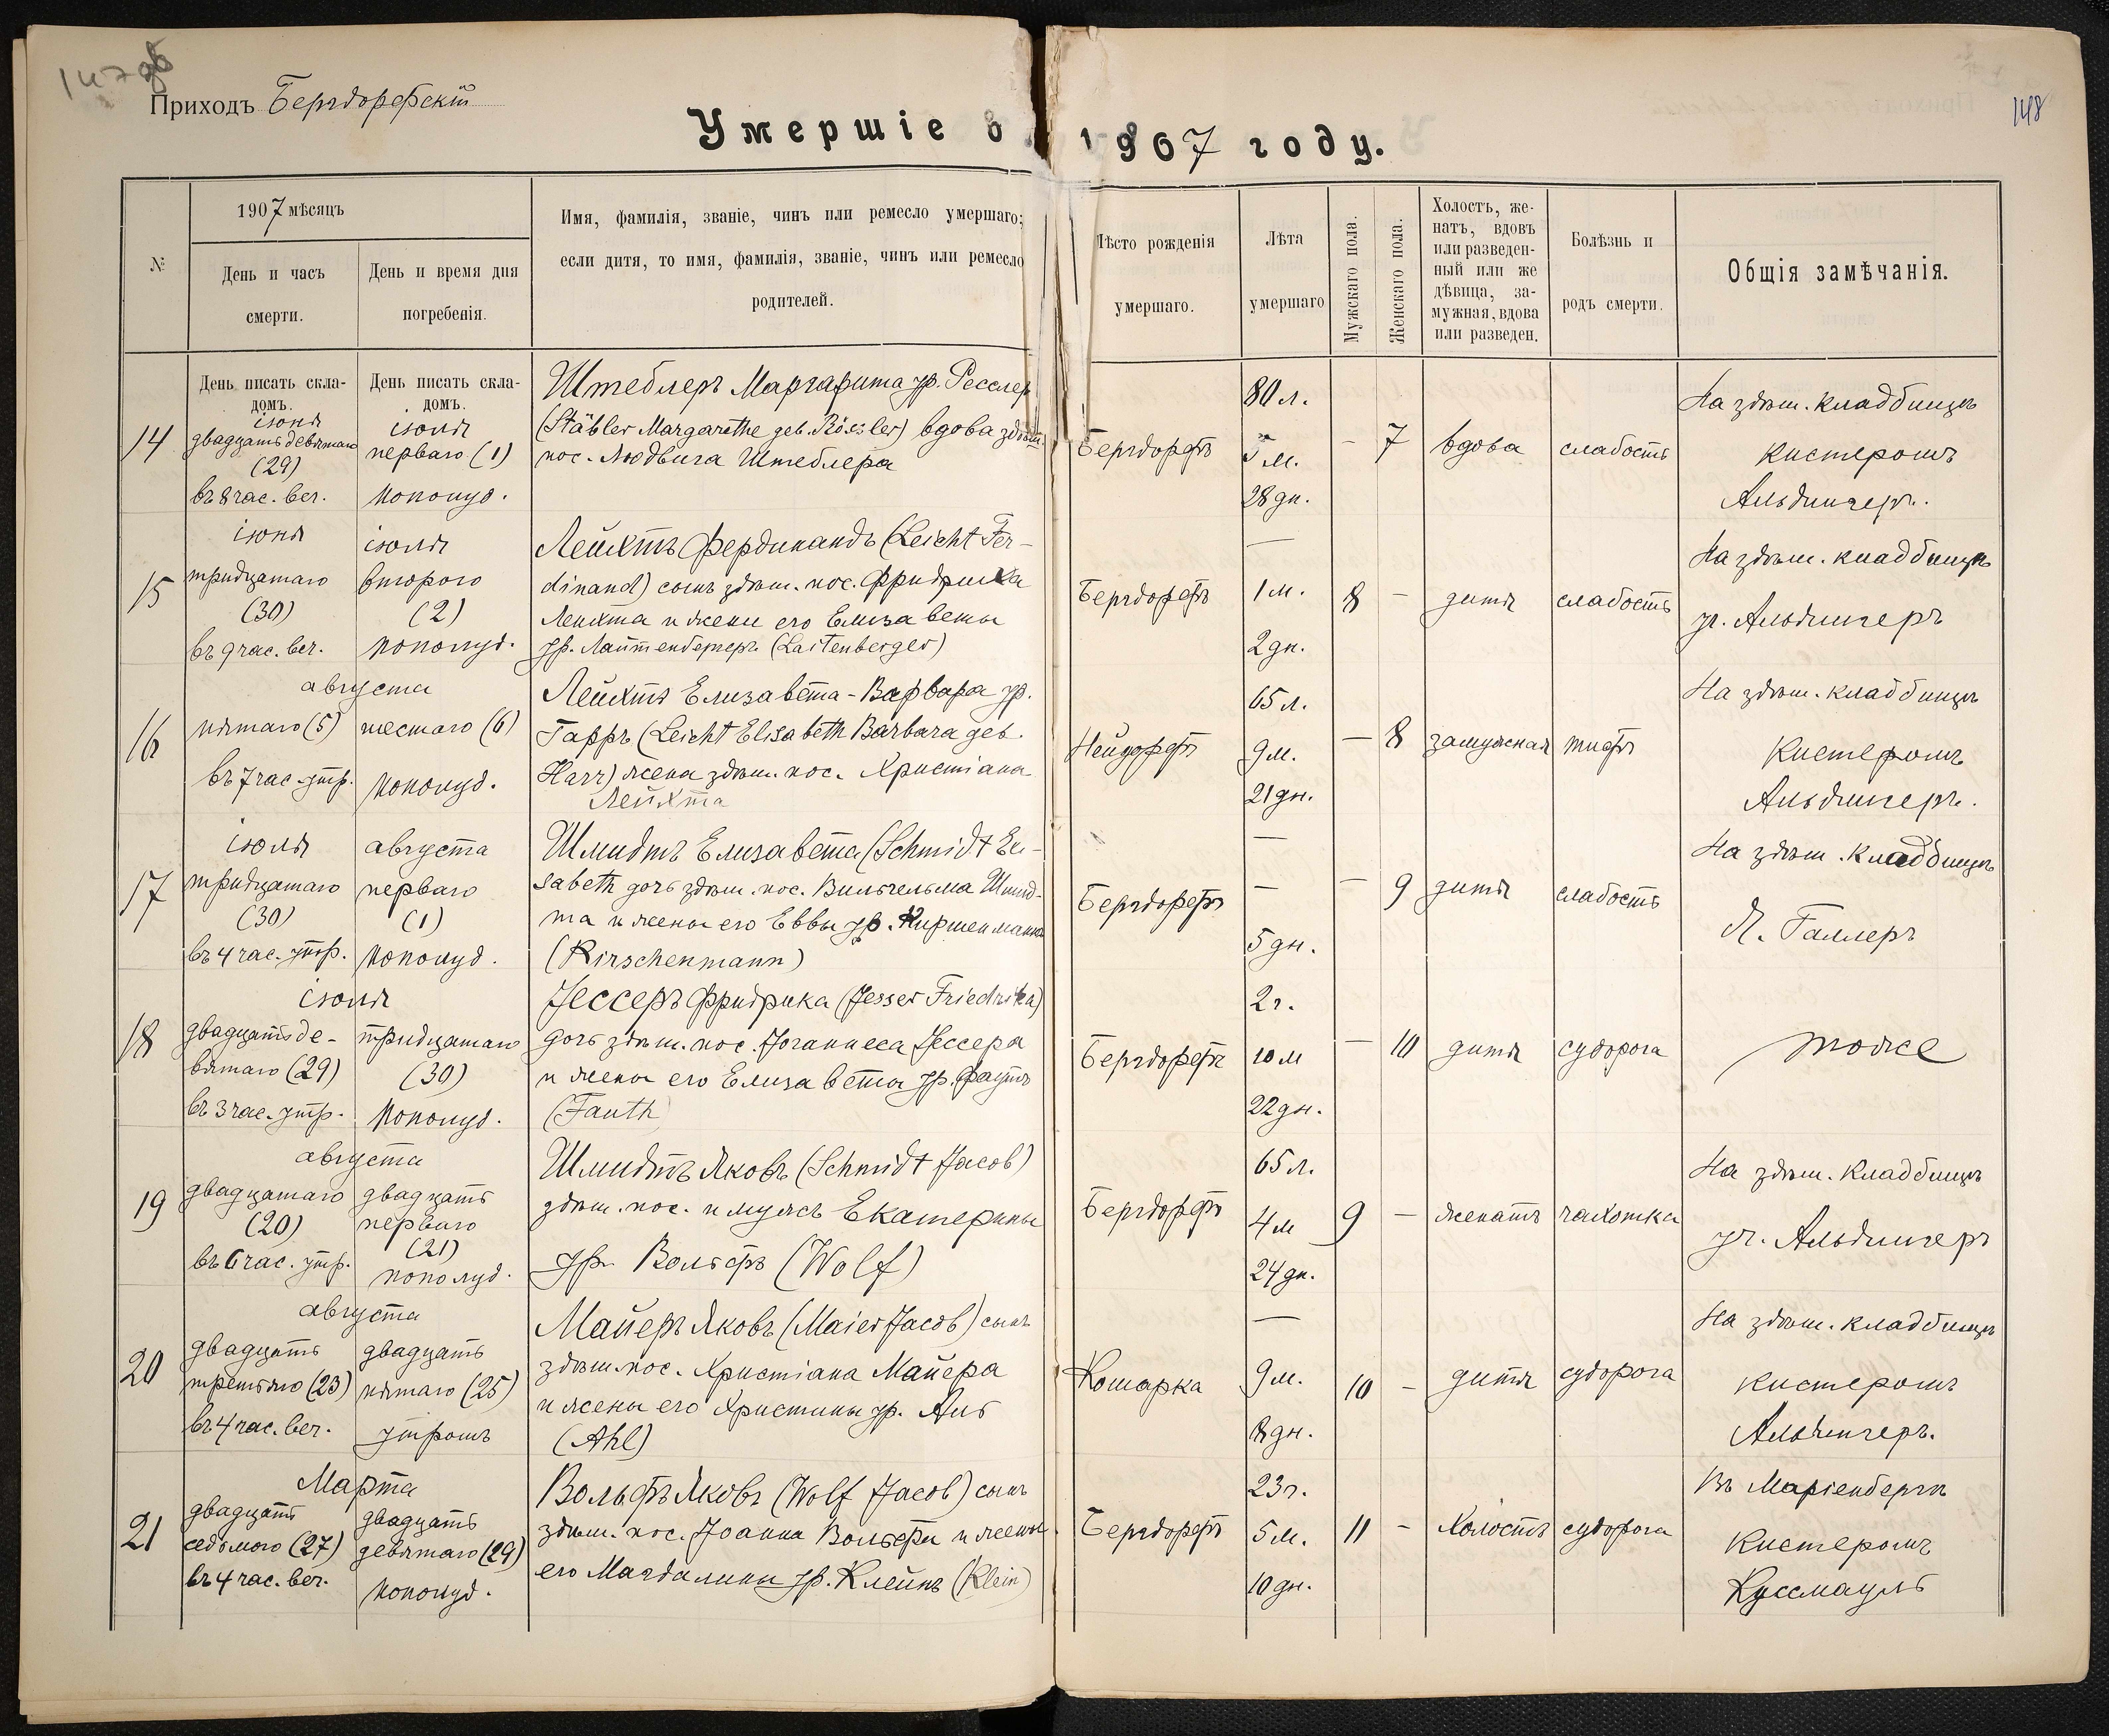 147 об
148
Приходъ Бергдорфскій
Умершіе въ 1907 году.
№
1907 мѣсяцъ
День и часъ
смерти.
День и время дня
погребенія.
Имя, фамилія, званіе, чинъ или ремесло умершаго;
если дитя, то имя, фамилія, званіе, чинъ или ремесло
родителей.
Мѣсто рожденія
умершаго.
Лѣта
умершаго
Мужскаго пола.
Женскаго пола.
Холостъ, же-
натъ, вдовъ
или разведен-
ный или же
дѣвица, за-
мужная, вдова
или разведен.
Болѣзнь и
родъ смерти.
Общія замѣчанія.
День писать скла-
домъ.
День писать скла-
домъ.
14
іюня
двадцать девятаго
(29)
въ 8 час. веч.
іюля
перваго (1)
пополуд.
Штеблеръ Маргарита ур. Ресслеръ
(Stäbler Margarethe geb. Rössler) вдова здѣш.
пос. Людвига Штеблера
Бергдорфъ
80 л.
5 м.
28 дн.
–
7
вдова
слабость
На здѣш. кладбищѣ
кистеромъ
Альдингеръ.
15
іюня
тридцатаго
(30)
въ 9 час. веч.
іюля
второго
(2)
пополуд.
Лейхтъ Фердинандъ (Leicht Fer-
dinand) сынъ здѣш. пос. Фридриха
Лейхта и жены его Елизаветы
ур. Лайтенбергеръ (Laitenberger)
Бергдорфъ
—
1 м.
2 дн.
8
–
дитя
слабость
На здѣш. кладбищѣ
уч. Альдингеръ
16
августа
пятаго (5)
въ 7 час. утр.
шестаго (6)
пополуд.
Лейхтъ Елизавета-Варвара ур.
Гарръ (Leicht Elisabeth Barbara geb.
Harr) жена здѣш. пос. Христіана
Лейхта
Нейдорфъ
65 л.
9 м.
21 дн.
—
8
замужная
тифъ
На здѣш. кладбищѣ
Кистеромъ
Альдингеръ.
17
іюля
тридцатаго
(30)
въ 4 час. утр.
августа
перваго
(1)
пополуд.
Шмидтъ Елизавета (Schmidt Eli-
sabeth дочь здѣш. пос. Вильгельма Шмид-
та и жены его Еввы ур. Киршенманнъ
(Kirschenmann)
Бергдорфъ
—
—
5 дн.
—
9
дитя
слабость
На здѣш. кладбищѣ
Я. Галлеръ
18
іюля
двадцать де-
вятаго (29)
въ 3 час. утр.
тридцатаго
(30)
пополуд.
Јессеръ Фридрика (Jesser Friedrika)
дочь здѣш. пос. Јоганнеса Јессера
и жены его Елизаветы ур. Фаутъ
(Fauth)
Бергдорфъ
2 г.
10 м
22 дн.
—
10
дитя
судорога
тоже
19
августа
двадцатаго
(20)
въ 6 час. утр.
двадцать
перваго
(21)
пополуд.
Шмидтъ Яковъ (Schmidt Jacob)
здѣш. пос. и мужъ Екатерины
ур. Вольфъ (Wolf)
Бергдорфъ
65 л.
4 м
24 дн.
9
–
женатъ
чахотка
На здѣш. кладбищѣ
уч. Альдингеръ
20
августа
двадцать
третьяго (23)
въ 4 час. веч.
двадцать
пятаго (25)
утромъ
Майеръ Яковъ (Maier Jacob) сынъ
здѣш. пос. Христіана Майера
и жены его Христины ур. Аль
(Ahl)
Кошарка
—
9 м.
8 дн.
10
–
дитя
судорога
На здѣш. кладбищѣ
кистеромъ
Альдингеръ.
21
Марта
двадцать
седьмого (27)
въ 4 час. веч.
двадцать
девятаго (29)
пополуд.
Вольфъ Яковъ (Wolf Jacob) сынъ
здѣш. пос. Јоанна Вольфа и жены
его Магдалины ур. Клейнъ (Klein)
Бергдорфъ
23 г.
5 м.
10 дн.
11
–
Холостъ
судорога
Въ Маріенбергѣ
Кистеромъ
Куссмауль